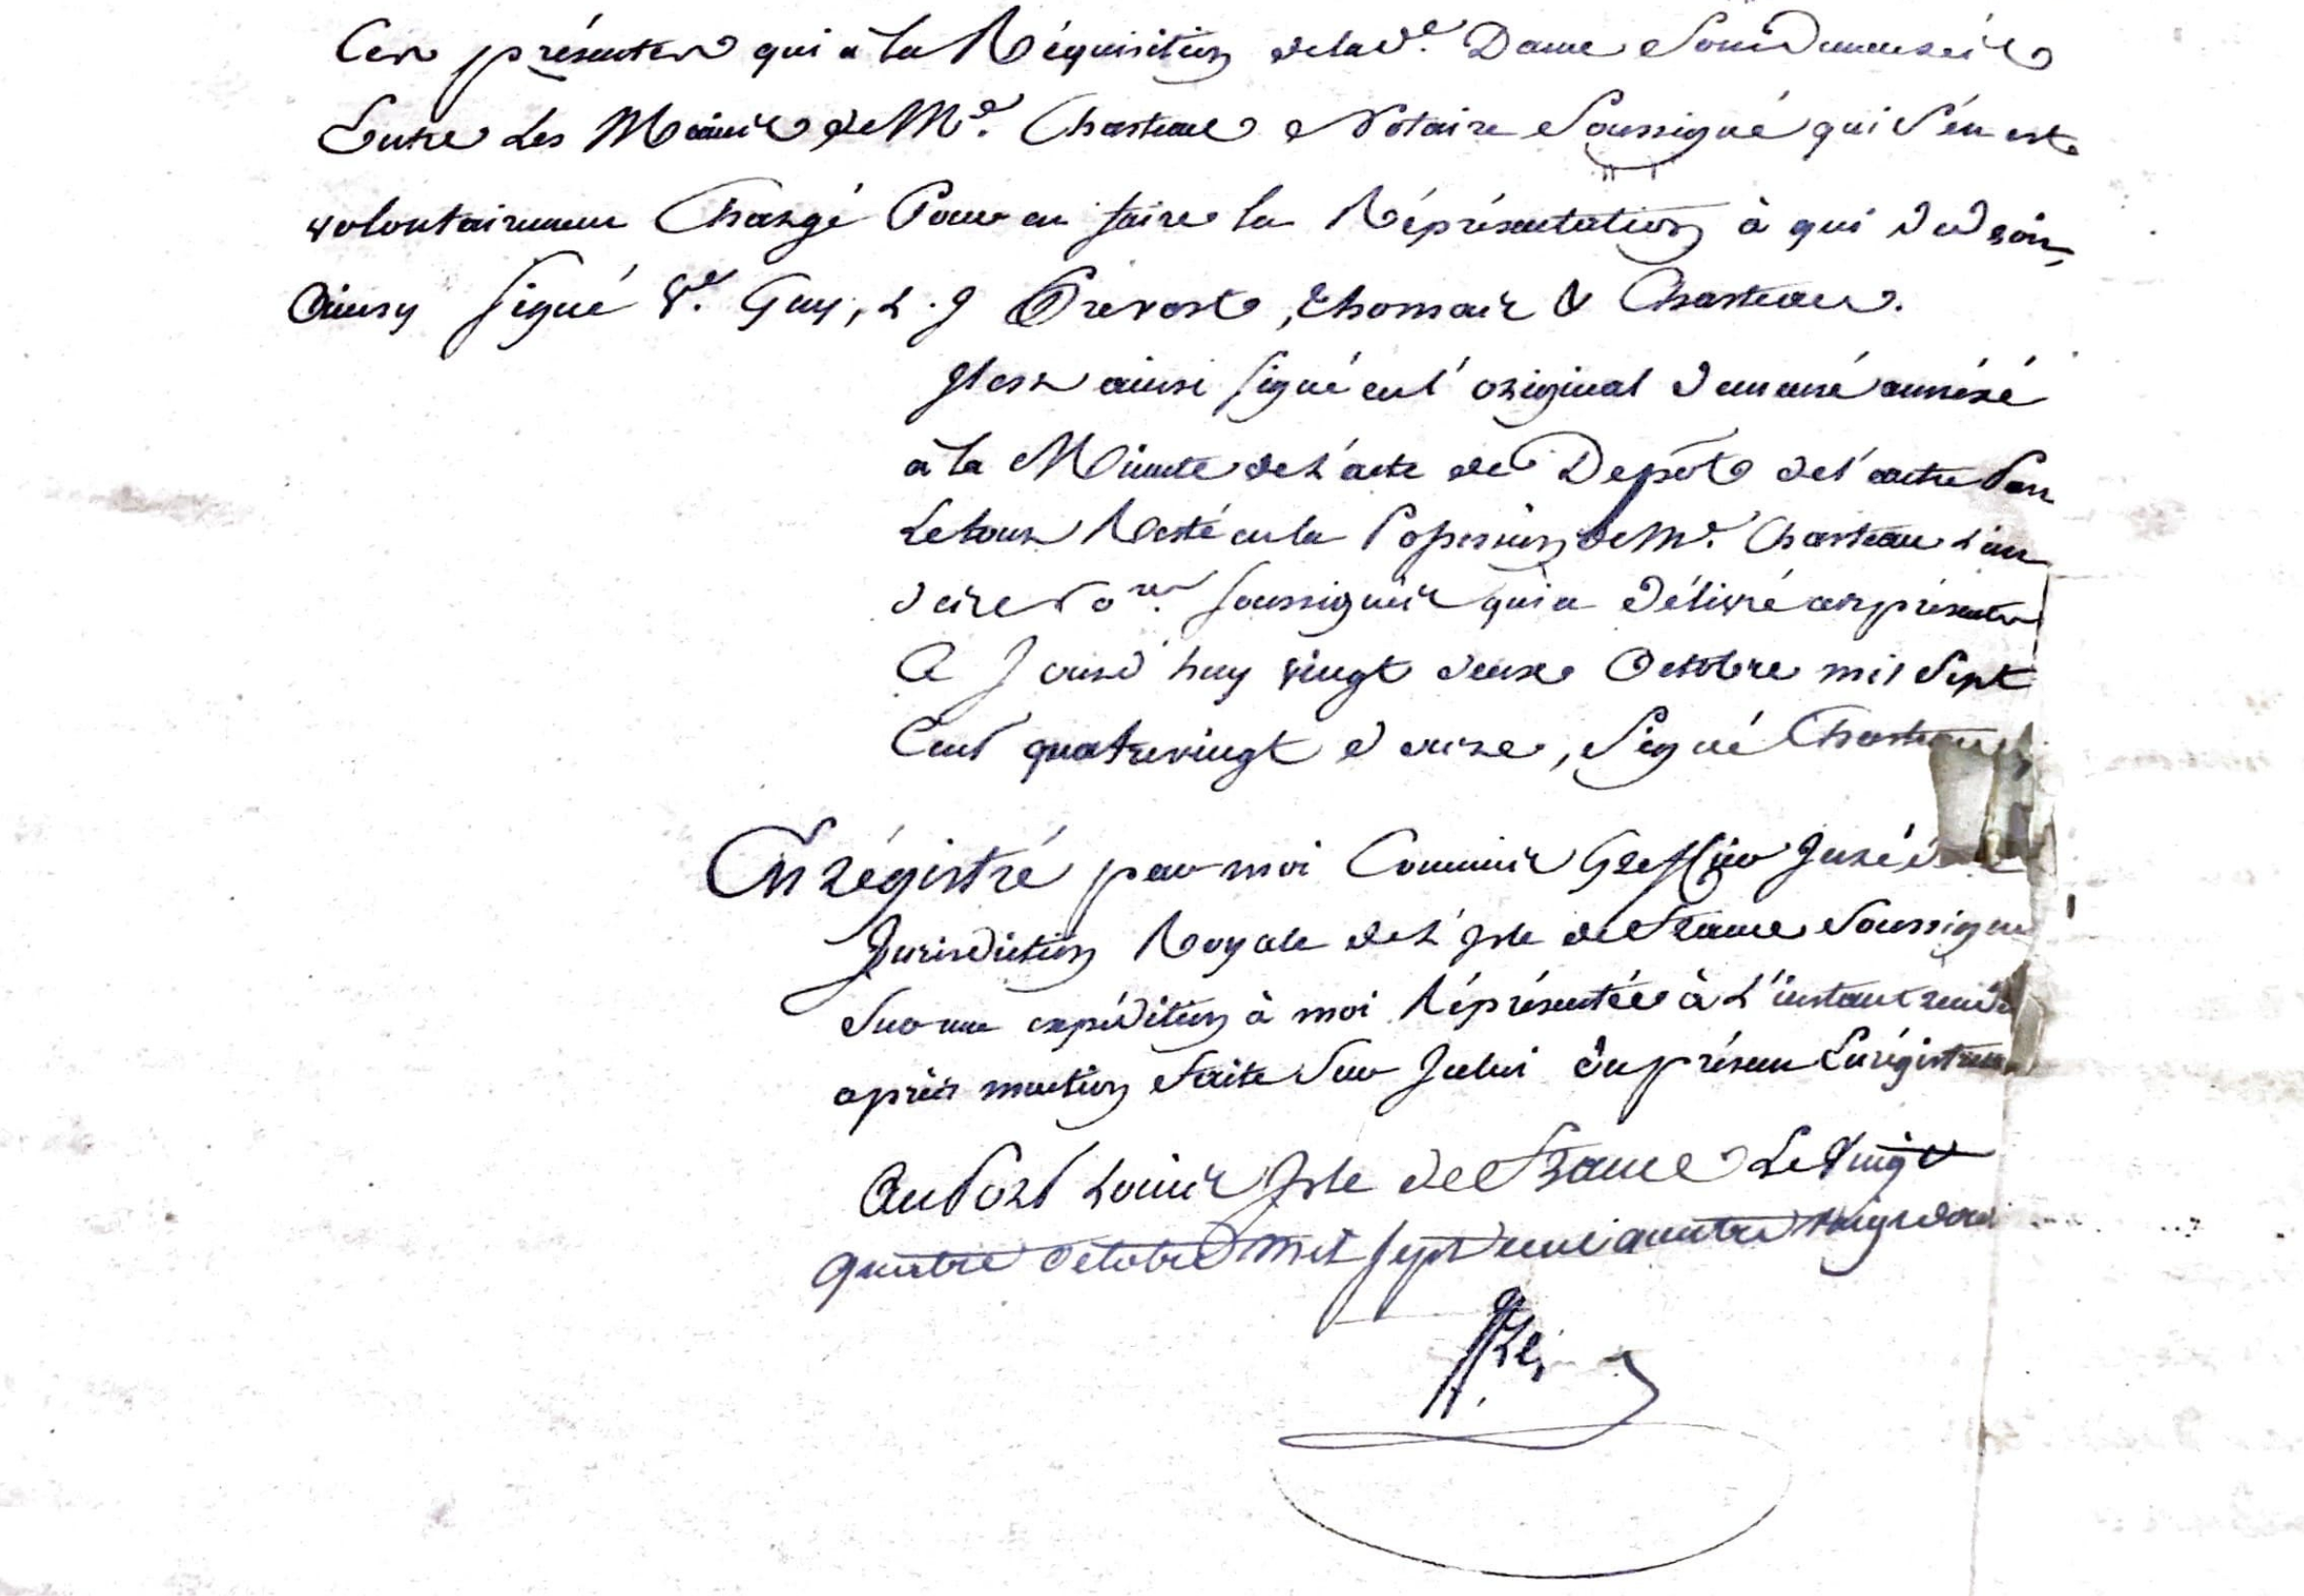 Ces présentes qui à la Réquisition de lad.e Dame sont demeurées
Entre Les Mains de M.e Chasteau Notaire Soussigné qui s'en est
volontairement Chargé Pour en faire la Réprésentation à qui de droit,
Ainsy signé V.e Guy, L. J Prevost, Thomas & Chasteau.
Il est ainsi signé en l'original demeuré annéxé
à la Minute de L'acte de Depôt de l'autre Part
Le tout Resté en la Possession de M.e Chasteau L'un
des No.res soussignés qui a Délivré ces présentes
Ce Jourd'huy vingt deux Octobre mil Sept
Cent quatrevingt , Signé Chasteau
Enrégistré par moi Commis Greffier Juré
Jurisdiction Royale de L'Isle de France Soussigné
Sur une expédition à moi Réprésentée à L'instant
après mention faite Sur Icelui du présent Enrégistrement
Au Port Louis Isle de France Le Vingt
quatre octobre mil sept cent quatre vingt